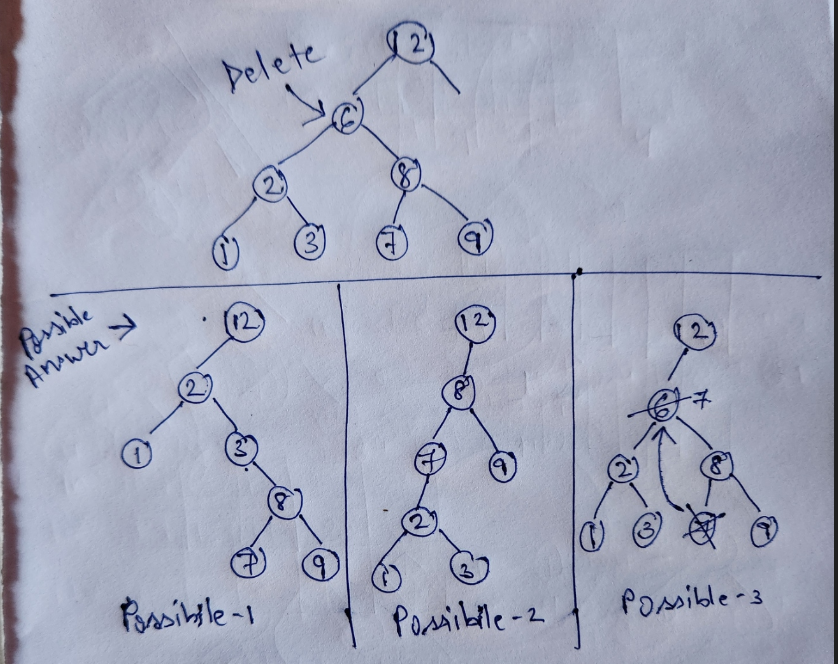 12
Delete
6
2 8
1 3 7 9
Possible
Answer
12
2
1 3
8
7 9
Possibile-1
12
8
7 9
2
1 3
Possibile-2
12
6 7
2 8
1 3 7 9
Possible-3